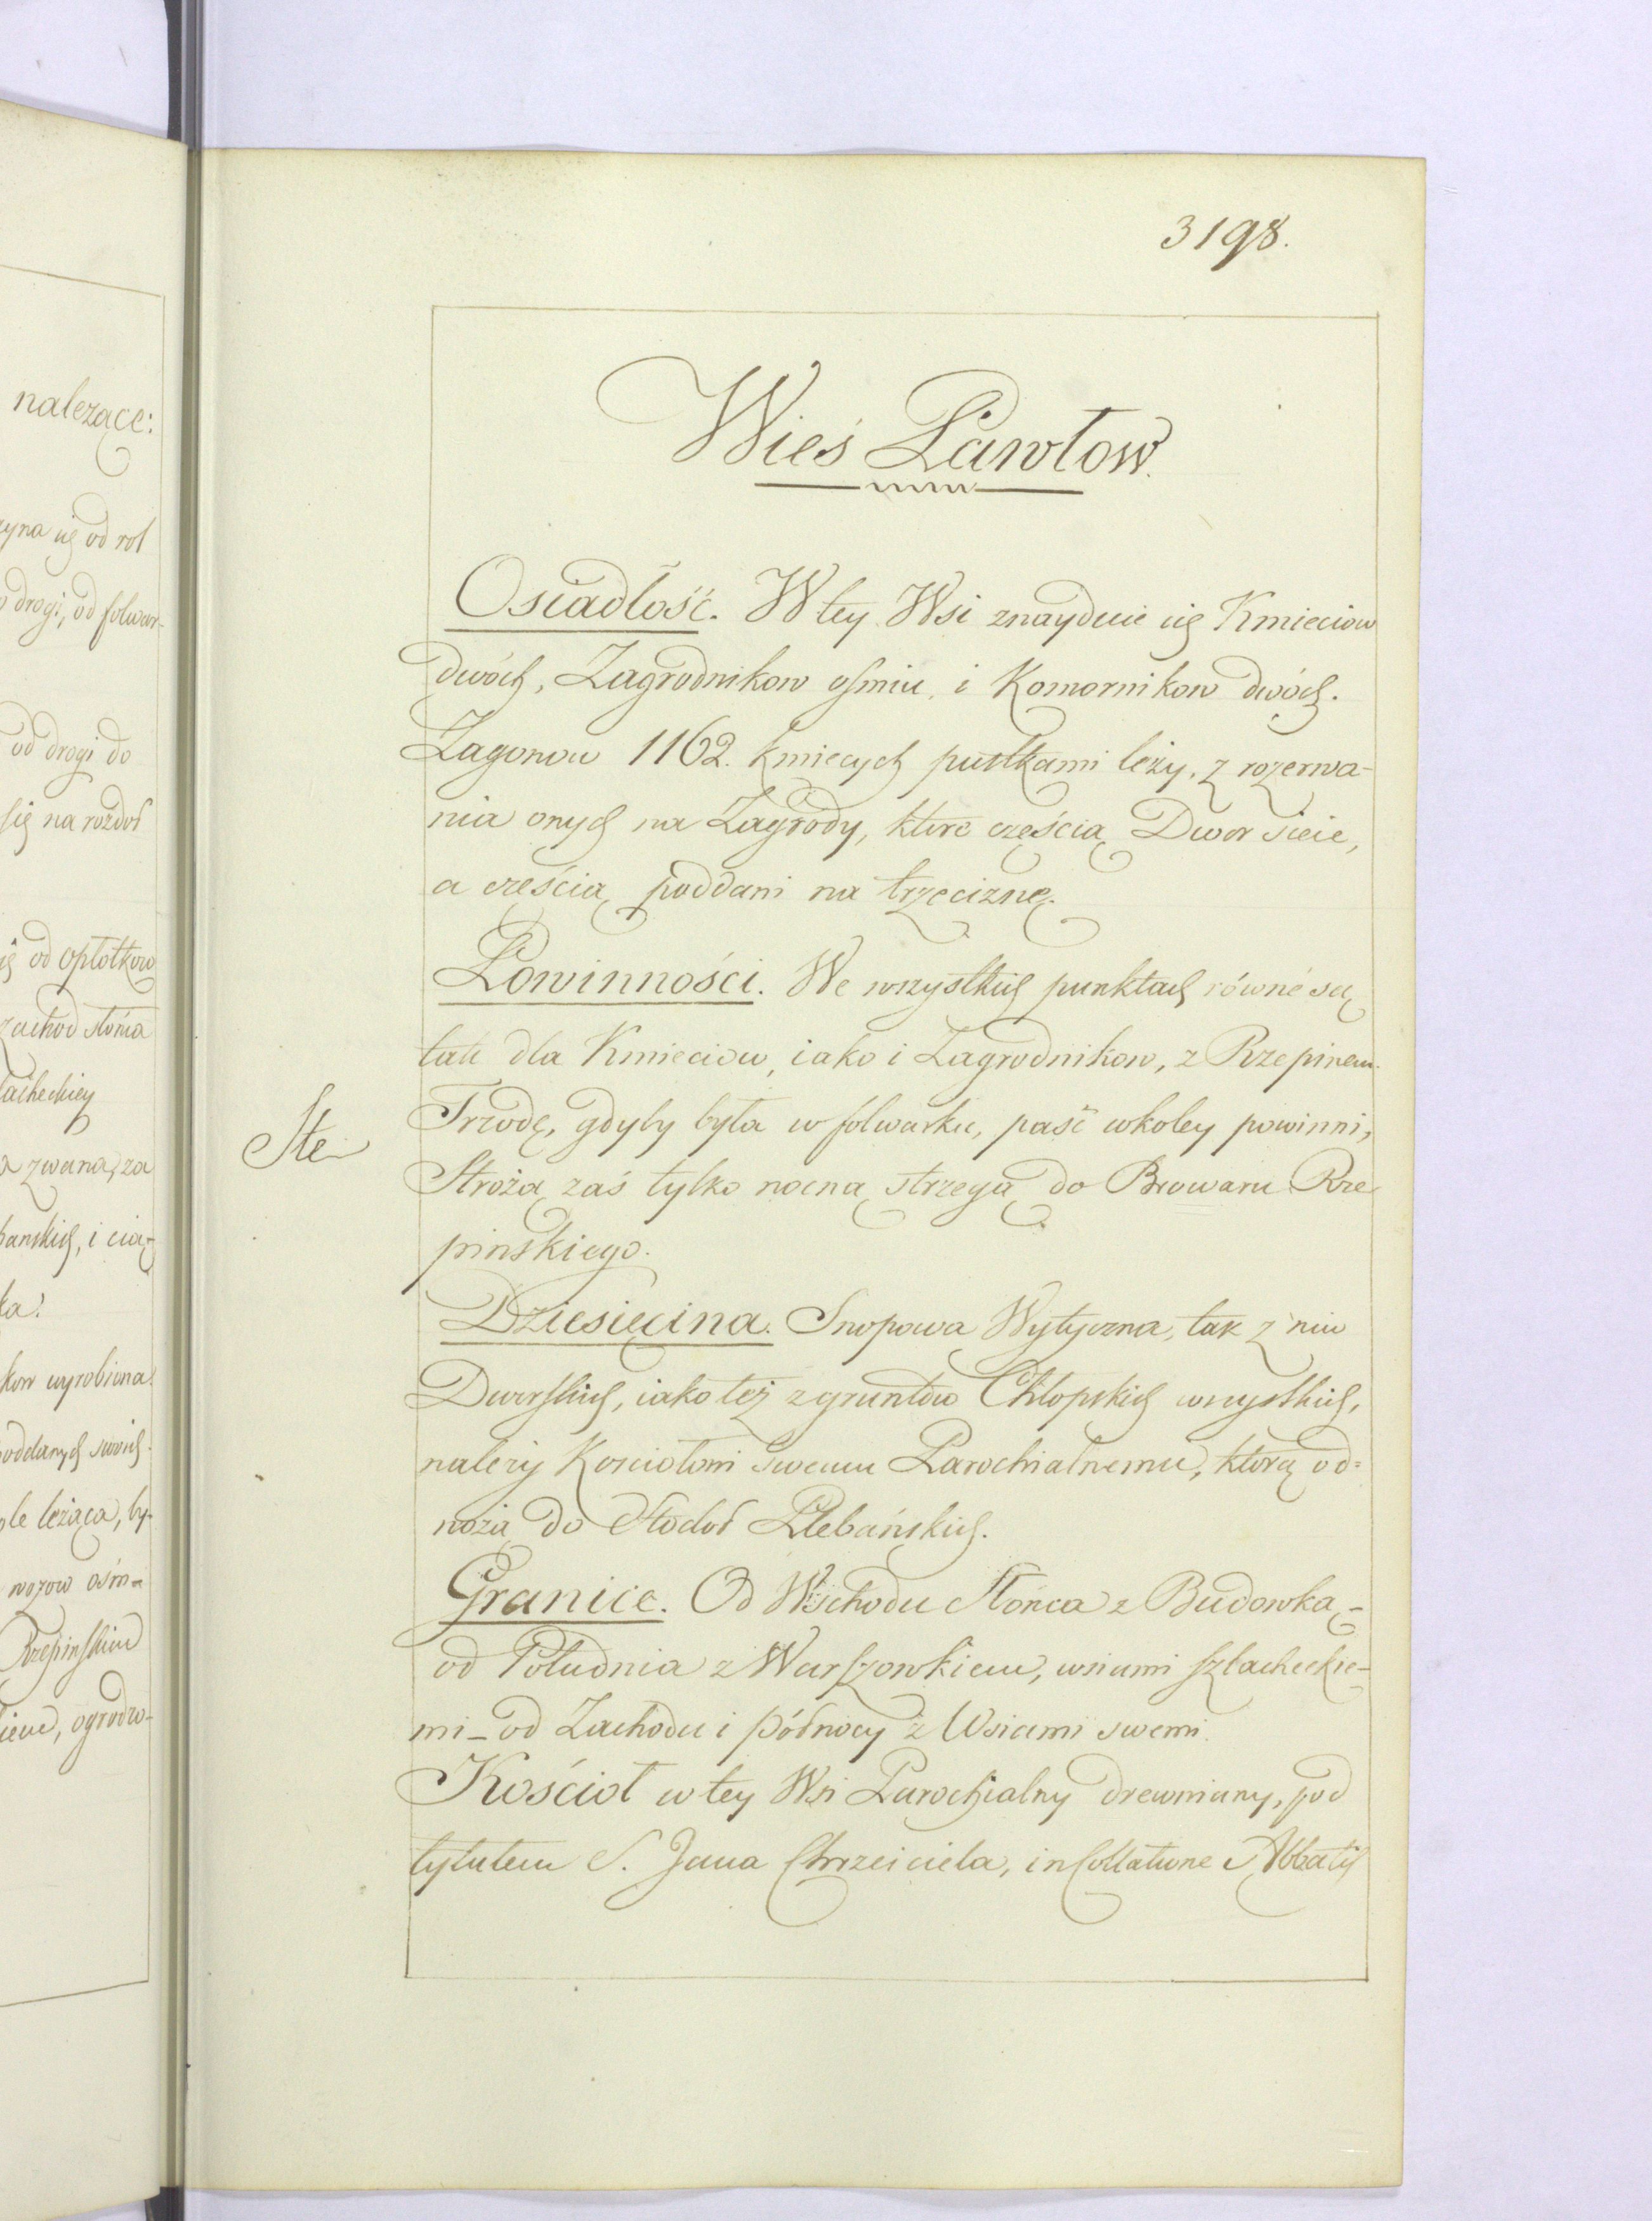 3198.
Wieś Pawłow.
Osiadłość. W tey Wsi znayduie się Kmieciow
dwóch, Zagrodnikow ośmiu, i Komornikow dwóch.
Zagonow 1162. kmiecych pustkami leży, z rozerwa-
nia onych na Zagrody, które częścią Dwor sieie,
a częścią poddani na trzeciznę.
Powinności. We wszystkich punktach równe są
tak dla Kmieciow, iako i Zagrodnikow, z Rzepinem.
Trzodę, gdyby była w folwarku, paść wkoley powinni,
Strożą zaś tylko nocną strzegą do Browaru Rze
pinskiego.
Dziesięcina. Snopowa Wytyczna, tak z niw
Dworskich, iako też z gruntów Chłopskich wszystkich,
należy Kościołowi swemu Parochialnemu, którą od=
wożą do Stodoł Plebańskich.
Granice. Od Wschodu Słońca z Budowką -
od Południa z Warszowkiem, wsiami szlacheckie-
mi - od Zachodu i północy z Wsiami swemi.
Kościoł w tey Wsi Parochialny drewniany, pod
tytułem S. Jana Chrzciciela, in Collatione Abbatis
Ste
należące:
od rol
drogi, od folwar-
od drogi do
się na rozdoł
od opłotkow
zachod słońca
zwana, za
i cią-
kow wyrobiona
poddanych swoich.
leżąca, by-
wozow ośm=
Rzepinskim
ogrodzo-